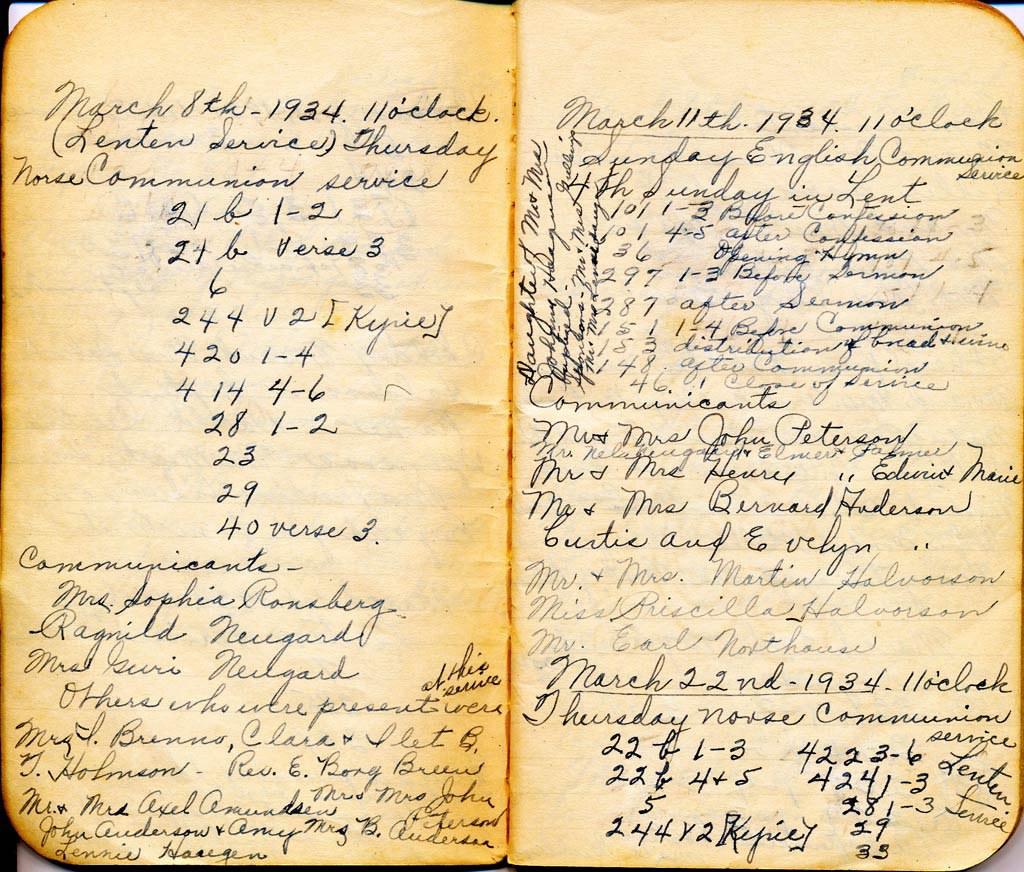 March 8th - 1934. 11 o'clock.
(Lenten Service) Thursday
Norse Communion service
21 b 1-2
24 b Verse 3
6
244 V 2 [Kyrie]
420 1-4
414 4-6
28 1-2
23
29
40 verse 3.
Communicants -
Mrs. Sophia Ronsberg
Ragnild Neugard
Mrs Guri Neugard
Others who were present at this service were
Mrs I. Brenno, Clara & Ilet B.
T. Holmson - Rev. E. Borg Breen
Mr. & Mrs Axel Amundsen Mr & Mrs John Peterson
John Anderson & Amy Mrs B. Anderson
Lennie Haugen
March 11th. 1934. 11 o'clock
Sunday English Communion Service
4th Sunday in Lent
101 1-3 Before Confession
101 4-5 after Confession
36 Opening Hymn
297 1-3 Before Sermon
287 after Sermon
151 1-4 Before Communion
152 distribution of bread & wine
148 after Communion
46. ! Close of Service
Daughter of Mr & Mrs
baptized -
Sponsors - Mr & Mrs
Mr & Mrs
Communicants
Mr & Mrs John Peterson
Mr. & Elmer & Palmer
Mr & Mrs Henry " Edwin & Marie
Mr & Mrs Bernard Anderson
Curtis and Evelyn "
Mr. & Mrs. Martin Halvorson
Miss Priscilla Halvorson
Mr. Earl Northouse
March 22nd - 1934. 11 o'clock
Thursday Norse Communion service
Lenten Service
22 b 1-3 422 3-6
22 b 4+5 424 1-3
5 28 1-3
244 V 2 [Kyrie] 29
33